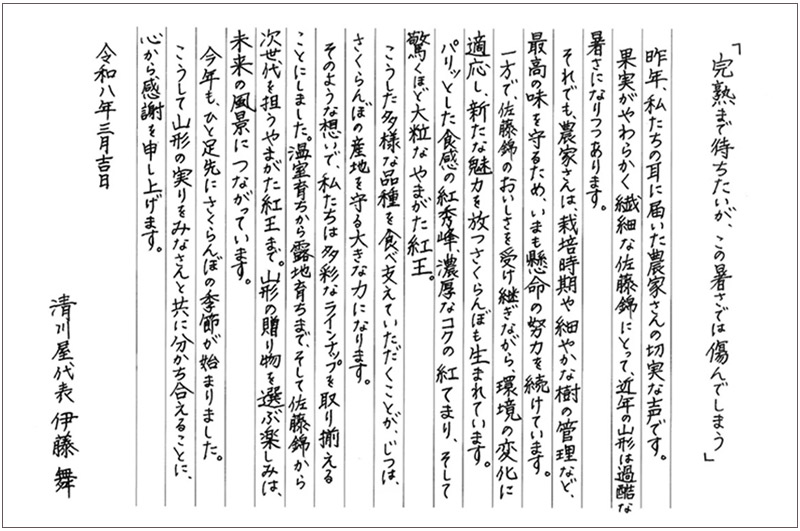 「完熟まで待ちたいが、この暑さでは傷んでしまう」
昨年、私たちの耳に届いた農家さんの切実な声です。
果実がやわらかく繊細な佐藤錦にとって、近年の山形は過酷な
暑さになりつつあります。
それでも、農家さんは、栽培時期や細やかな樹の管理など、
最高の味を守るため、いまも懸命の努力を続けています。
一方で佐藤錦のおいしさを受け継ぎながら、環境の変化に
適応し、新たな魅力を放つさくらんぼも生まれています。
パリッとした食感の紅秀峰、濃厚なコクの紅てまり、そして
驚くほど大粒なやまがた紅王。
こうした多様な品種を食べ支えていただくことが、じつは、
さくらんぼの産地を守る大きな力になります。
そのような想いで、私たちは多彩なラインナップを取り揃える
ことにしました。温室育ちから露地育ちまで、そして佐藤錦から
次世代を担うやまがた紅王まで。山形の贈り物を選ぶ楽しみは、
未来の風景につながっています。
今年も、ひと足先にさくらんぼの季節が始まりました。
こうして山形の実りをみなさんと共に分かち合えることに、
心から感謝を申し上げます。
令和八年三月吉日
清川屋代表 伊藤 舞